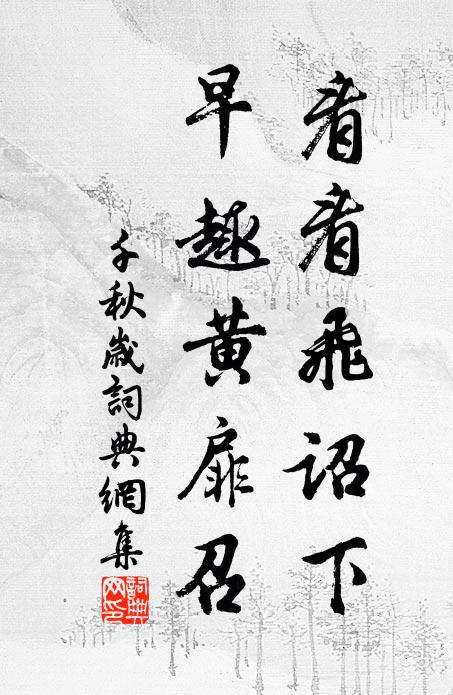 看看飛詔下
早趣黃扉召
千秋歲詞典網集